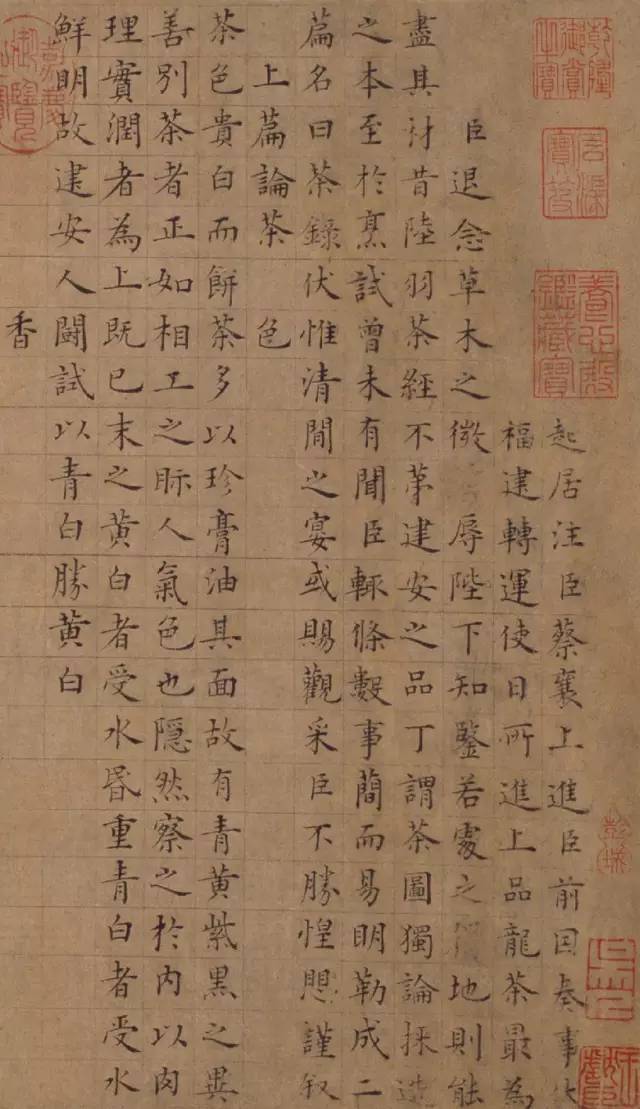 乾隆御賞之寶
石渠寶笈
養心殿鑑藏寶
起居注臣蔡襄上進臣前因奏事
福建轉運使日所進上品龍茶最為
臣退念草木之微辱陛下知鑒若處之地則能
盡其材昔陸羽茶經不苐建安之品丁謂茶圖獨論採造
之本至於烹試曾未有聞臣輒條數事簡而易明勒成二
篇名曰茶錄伏惟清閒之宴或賜觀采臣不勝惶懼謹叙
上篇論茶 色
茶色貴白而餅茶多以珍膏油其面故有青黃紫黑之異
善別茶者正如相工之眎人氣色也隱然察之於內以肉
理實潤者為上既已末之黃白者受水昬重青白者受水
鮮明故建安人鬪試以青白勝黃白
香
嘉慶御覽之寶